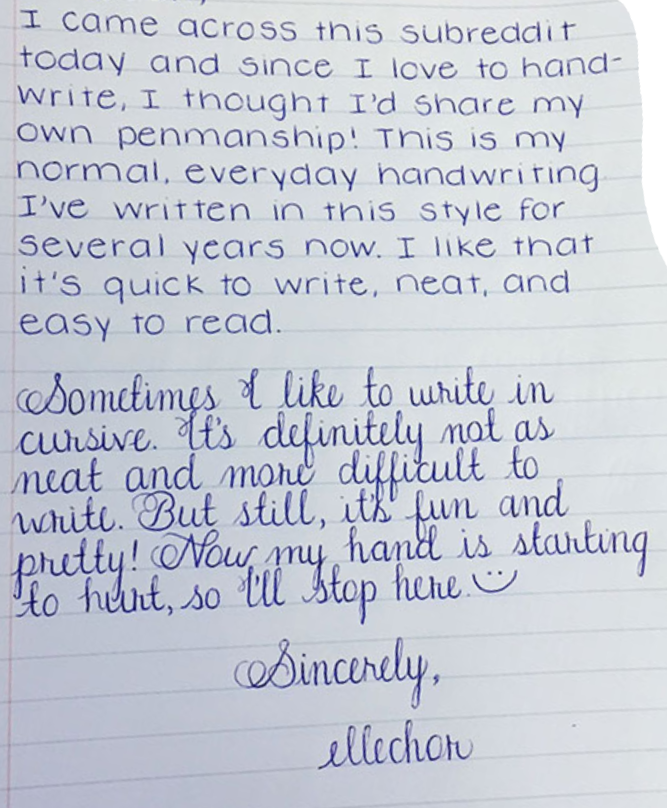 I came across this subreddit
today and since I love to hand-
write, I thought I'd share my
own penmanship! This is my
normal, everyday handwriting
I've written in this style for
several years now. I like that
it's quick to write, neat, and
easy to read.
Sometimes I like to write in
cursive. It's definitely not as
neat and more difficult to
write. But still, it's fun and
pretty! Now my hand is starting
to hurt, so I'll stop here.
Sincerely,
ellechon